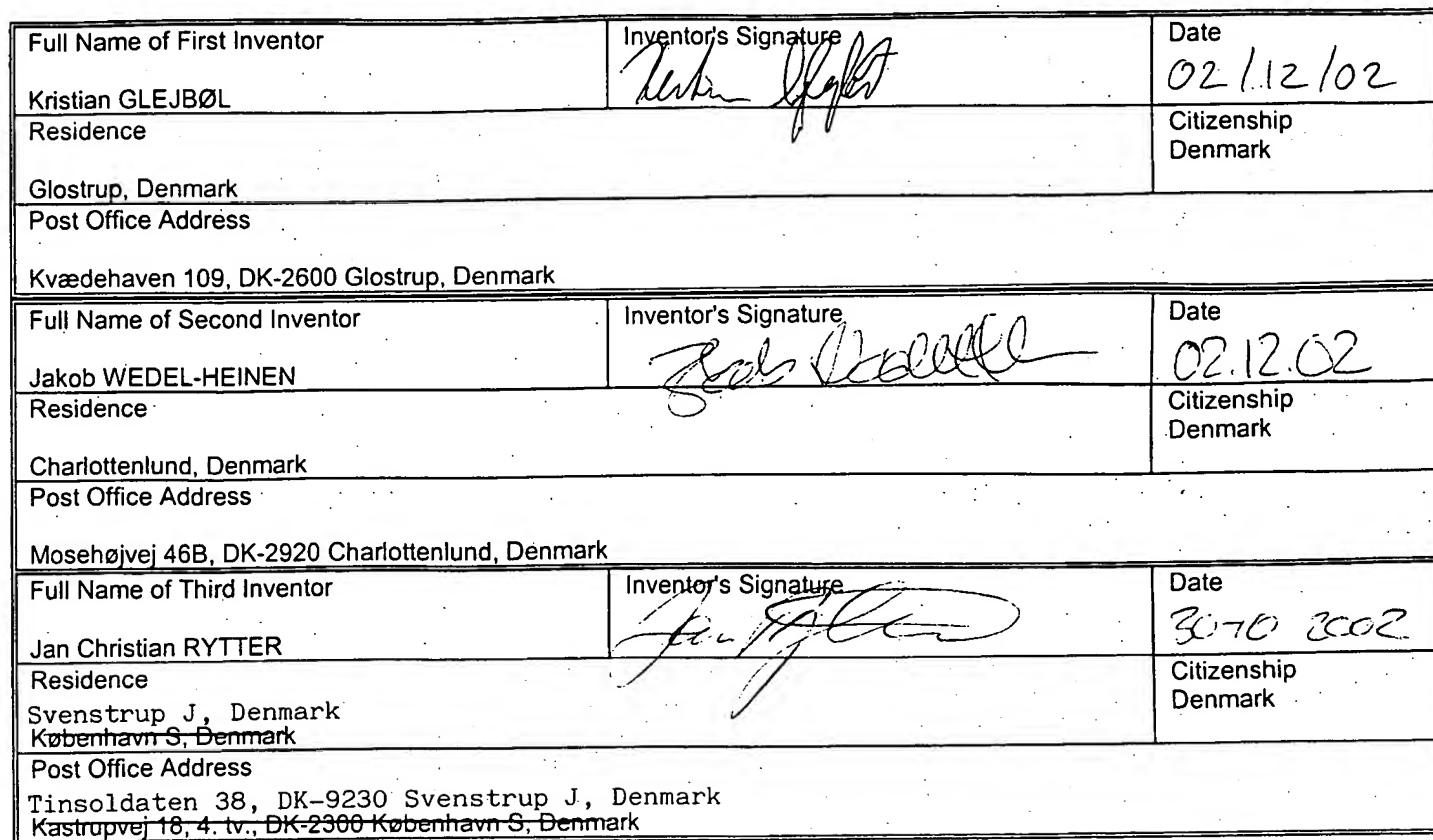 Full Name of First Inventor
Kristian GLEJBØL
Inventor's Signature
Date
02/12/02
Residence
Glostrup, Denmark
Citizenship
Denmark
Post Office Address
Kvædehaven 109, DK-2600 Glostrup, Denmark
Full Name of Second Inventor
Jakob WEDEL-HEINEN
Inventor's Signature
Date
02.12.02
Residence
Charlottenlund, Denmark
Citizenship
Denmark
Post Office Address
Mosehøjvej 46B, DK-2920 Charlottenlund, Denmark
Full Name of Third Inventor
Jan Christian RYTTER
Inventor's Signature
Date
30-10 2002
Residence
Svenstrup J, Denmark
København S, Denmark
Citizenship
Denmark
Post Office Address
Tinsoldaten 38, DK-9230 Svenstrup J, Denmark
Kastrupvej 18, 4. tv., DK-2300 København S, Denmark